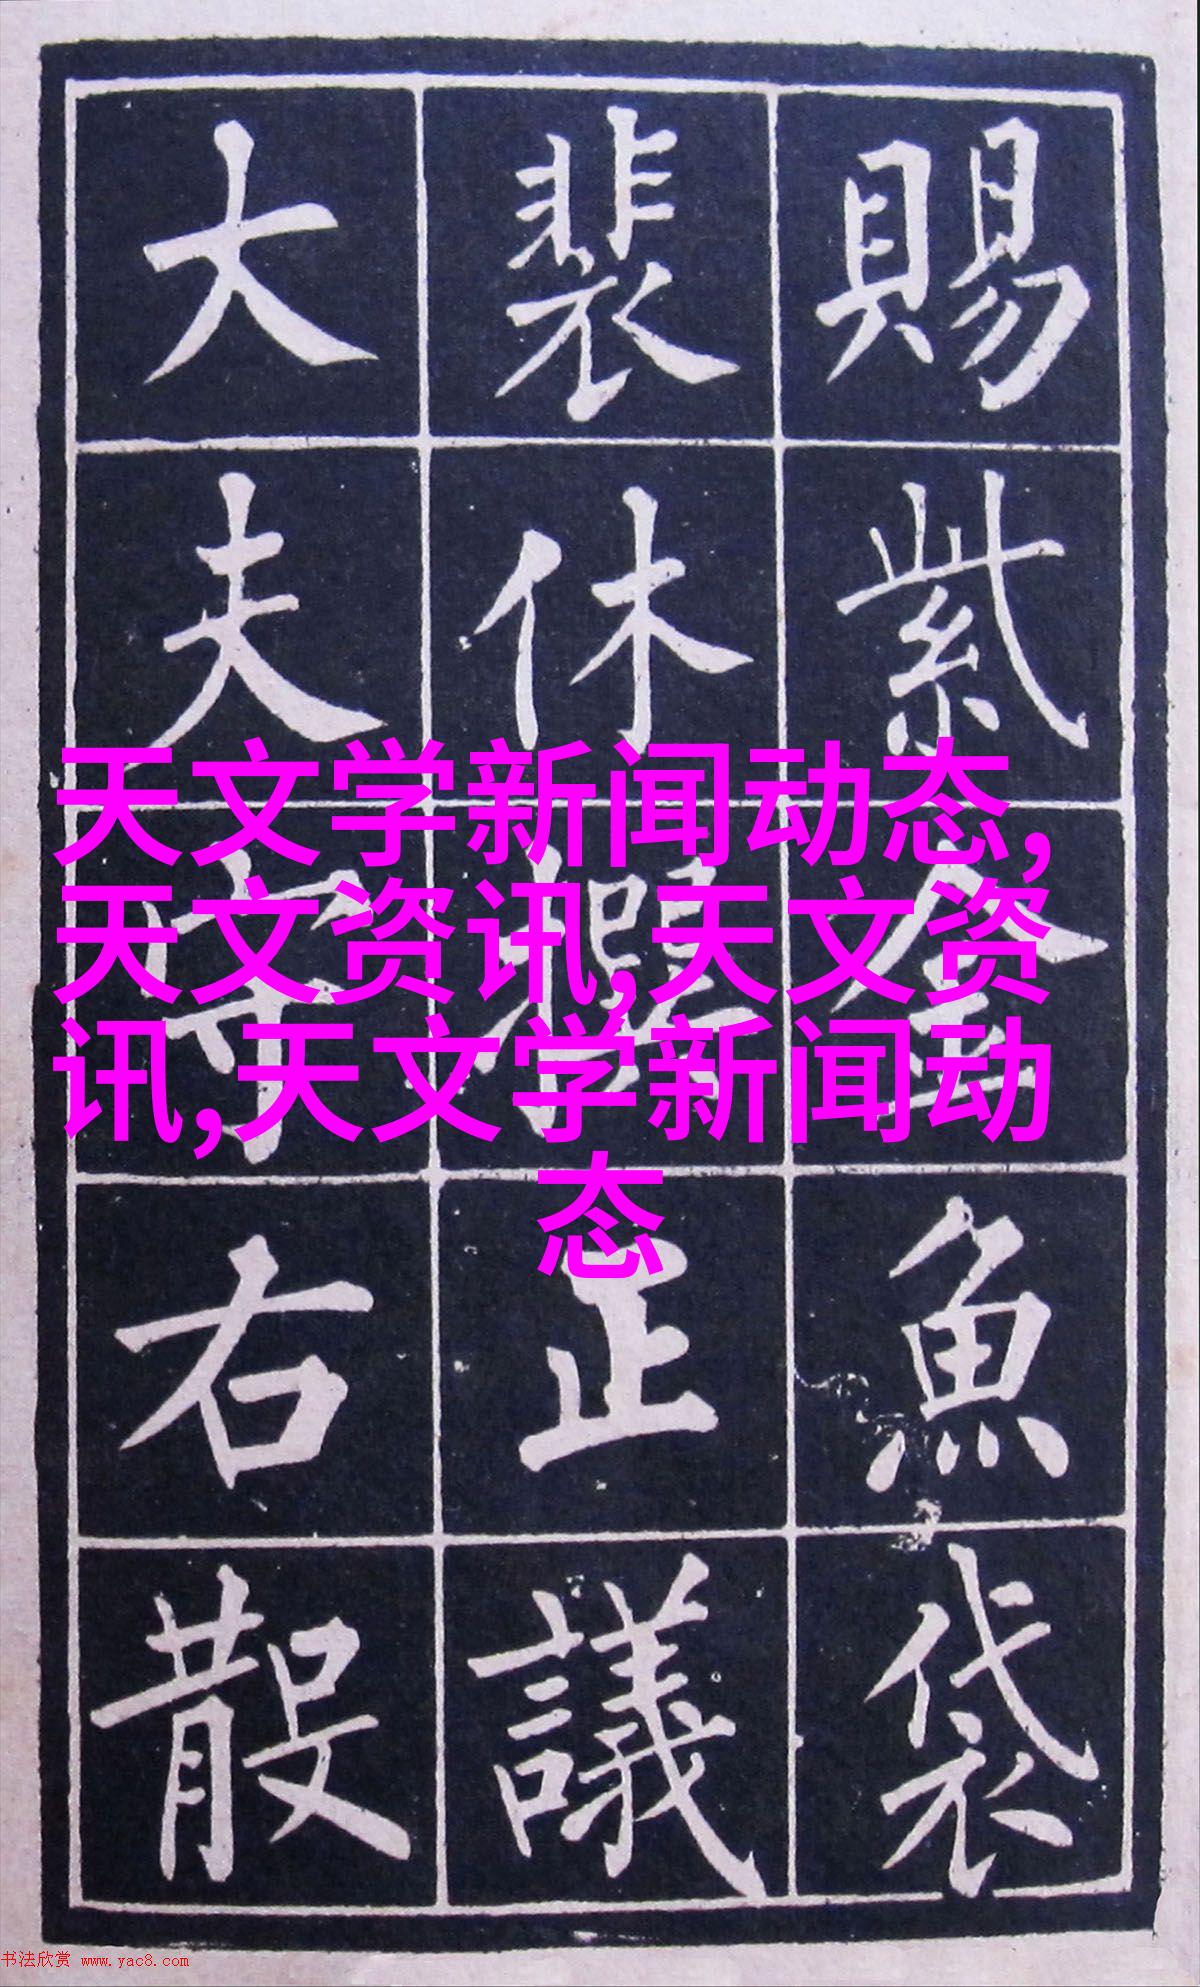 賜紫金魚袋
裴休撰正議
大夫守右散
天文学新闻动态,
天文资讯,天文资
讯,天文学新闻动
态
书法欣赏 www.yac8.com